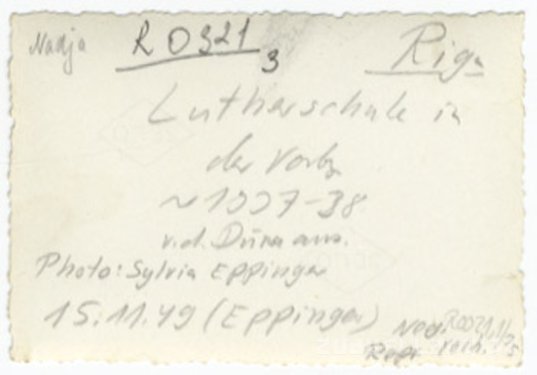 Nadja R0321 3 Riga
Lutherschule in
der Vorb.
~1937-38
v.d. Düna aus.
Photo: Sylvia Eppinger
15.11.49 (Eppinger)
Repr. vorh.